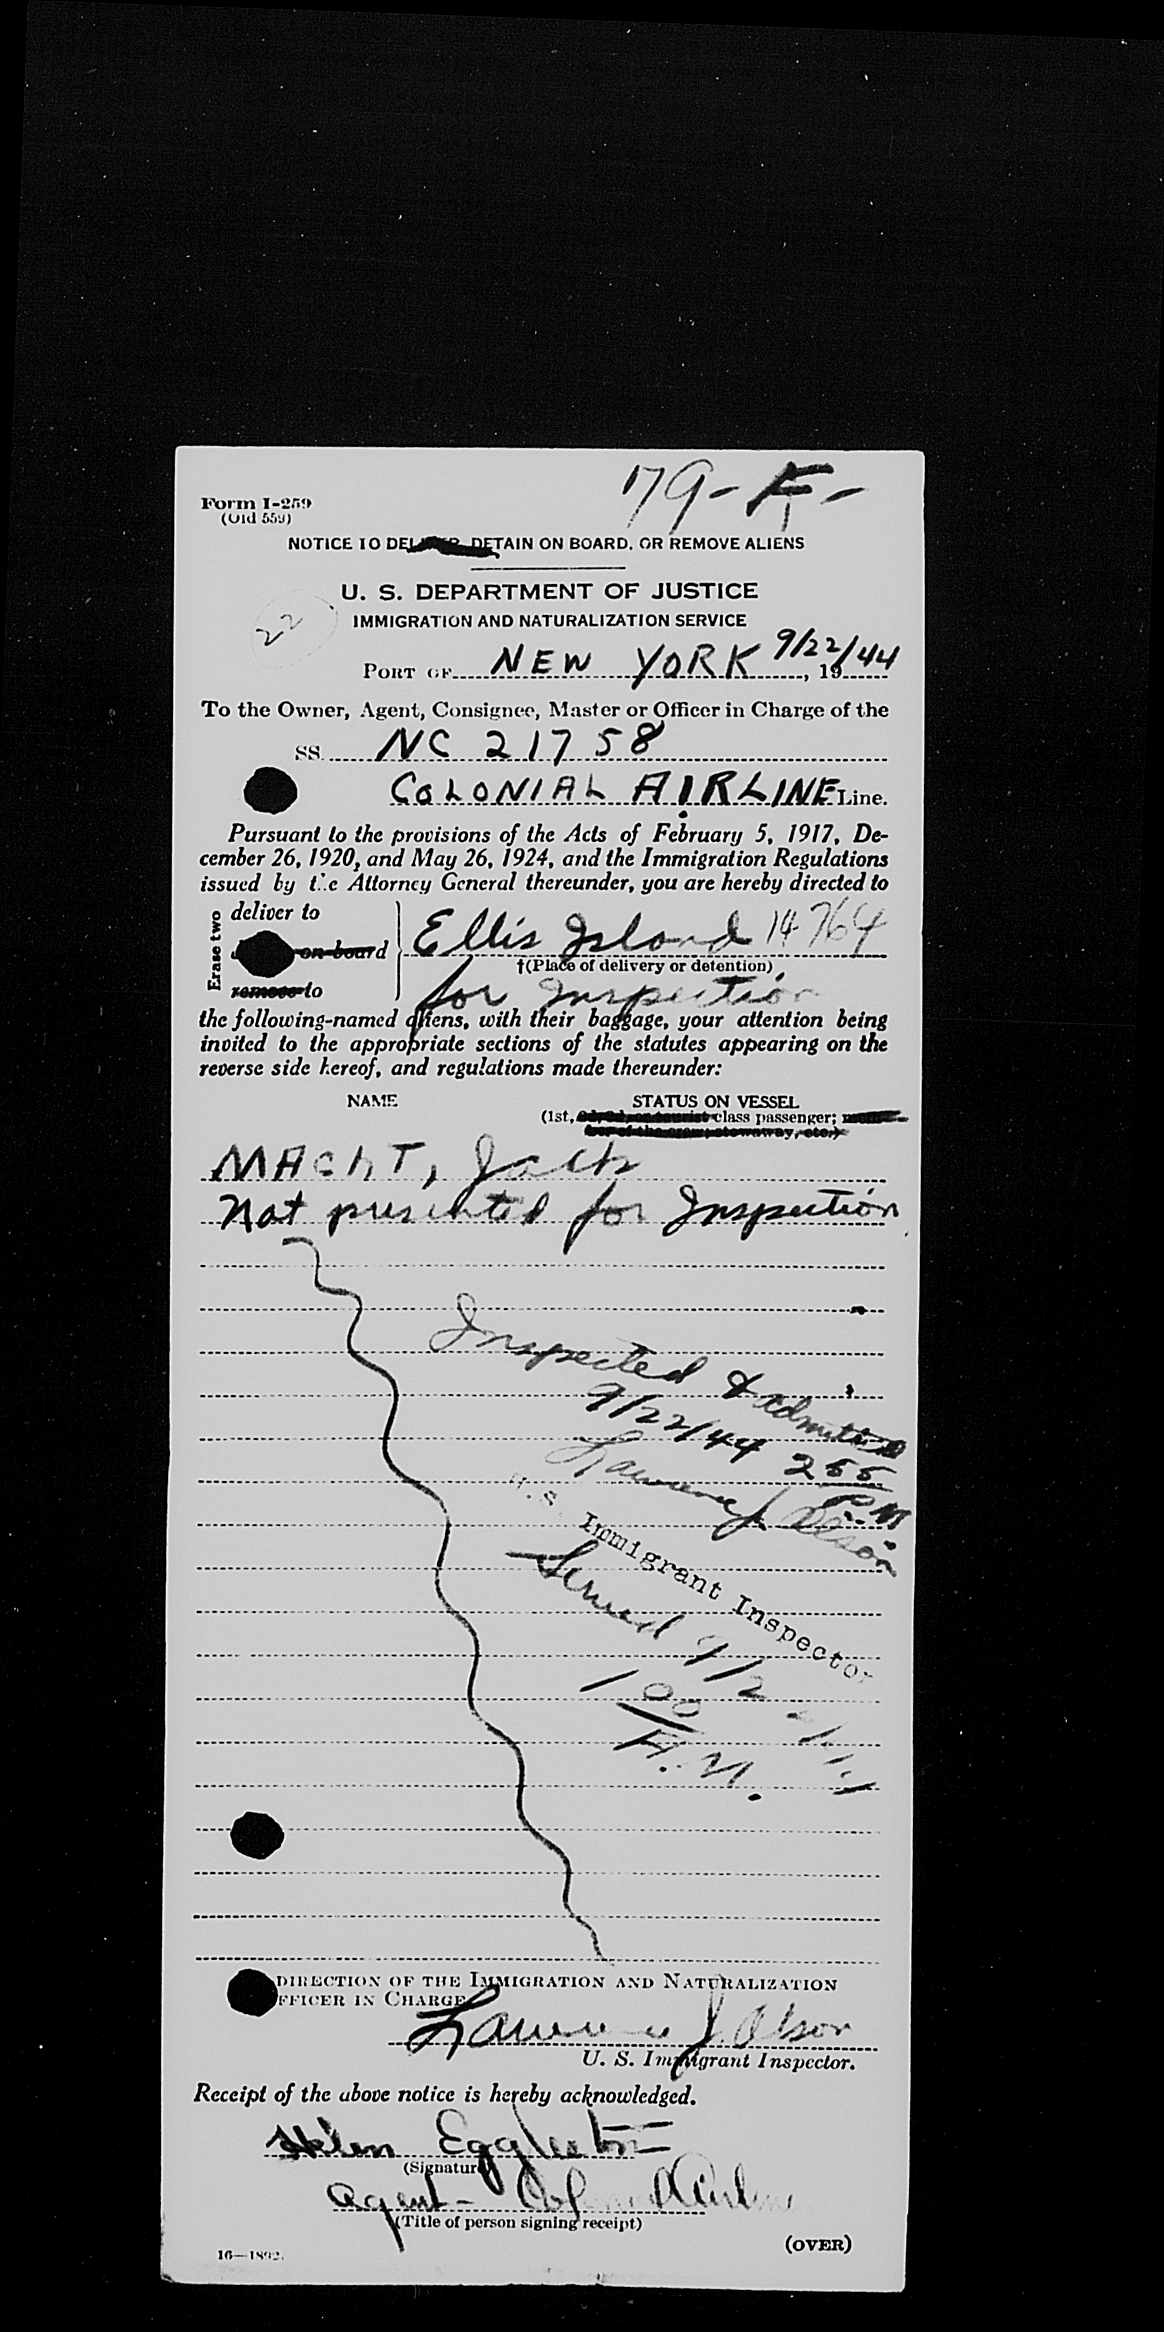 179-F-
Form I-259
(Old 559)
NOTICE TO DELIVER, DETAIN ON BOARD, OR REMOVE ALIENS
U. S. DEPARTMENT OF JUSTICE
22
IMMIGRATION AND NATURALIZATION SERVICE
PORT OF NEW YORK 9/22/44, 19
To the Owner, Agent, Consignee, Master or Officer in Charge of the
SS. NC 21758
COLONIAL AIRLINE Line.
Pursuant to the provisions of the Acts of February 5, 1917, De-
cember 26, 1920, and May 26, 1924, and the Immigration Regulations
issued by the Attorney General thereunder, you are hereby directed to
Erase two
deliver to
on board
remove to
Ellis Island 14764
†(Place of delivery or detention)
for Inspection
the following-named aliens, with their baggage, your attention being
invited to the appropriate sections of the statutes appearing on the
reverse side hereof, and regulations made thereunder:
NAME STATUS ON VESSEL
(1st, 2d, 3d, or tourist class passenger; mem-
ber of the crew; stowaway, etc.)
MAChT, Jack
Not presented for Inspection
Inspected & admitted
9/22/44 2 55 P.M
Lawrence J. Olson
U.S. Immigrant Inspector
Served 9/2
1 00
A.M.
DIRECTION OF THE IMMIGRATION AND NATURALIZATION
OFFICER IN CHARGE
Lawrence J. Olson
U. S. Immigrant Inspector.
Receipt of the above notice is hereby acknowledged.
Helen Eggleston
(Signature)
Agent - Colonial Airline
(Title of person signing receipt)
(OVER)
16—1892